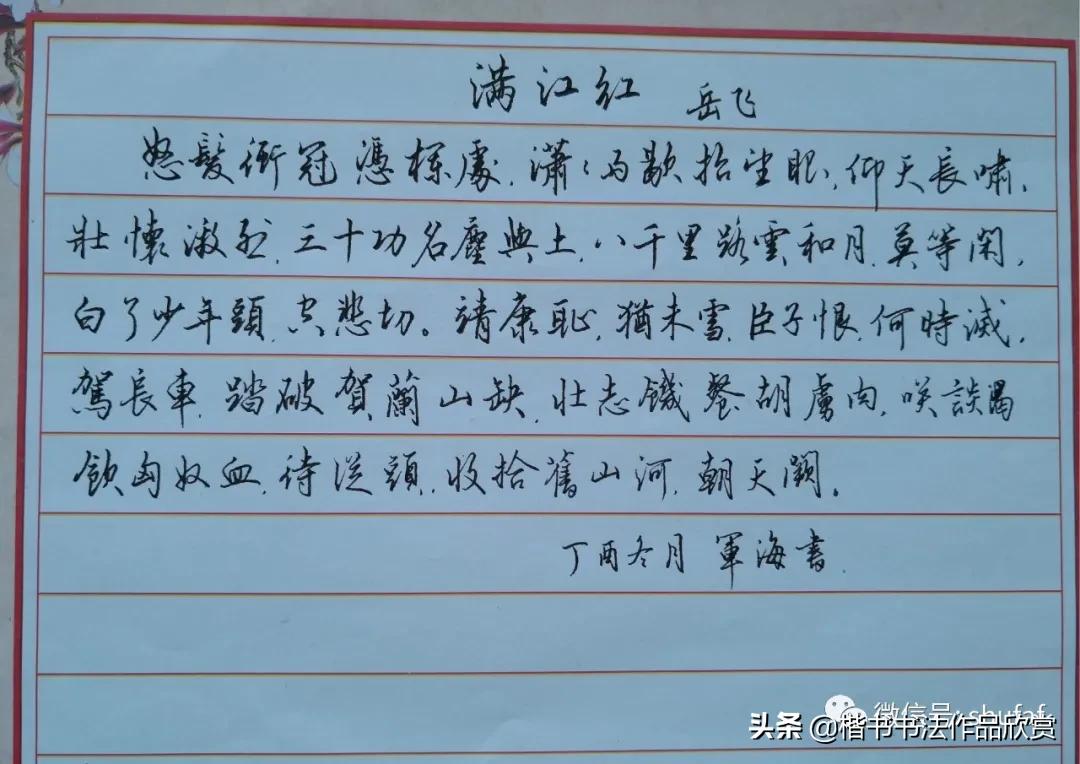 满江红 岳飞
怒髮衝冠憑欄處,瀟〻雨歇抬望眼,仰天長嘯,
壯懷激烈.三十功名塵與土,八千里路雲和月.莫等閑,
白了少年頭,空悲切。靖康恥,猶未雪.臣子恨,何時滅,
駕長車,踏破賀蘭山缺,壯志饑餐胡虜肉,笑談渴
飲匈奴血,待從頭,收拾舊山河,朝天闕。
丁酉冬月 軍海書.
微信号: shufaf
头条 @楷书书法作品欣赏